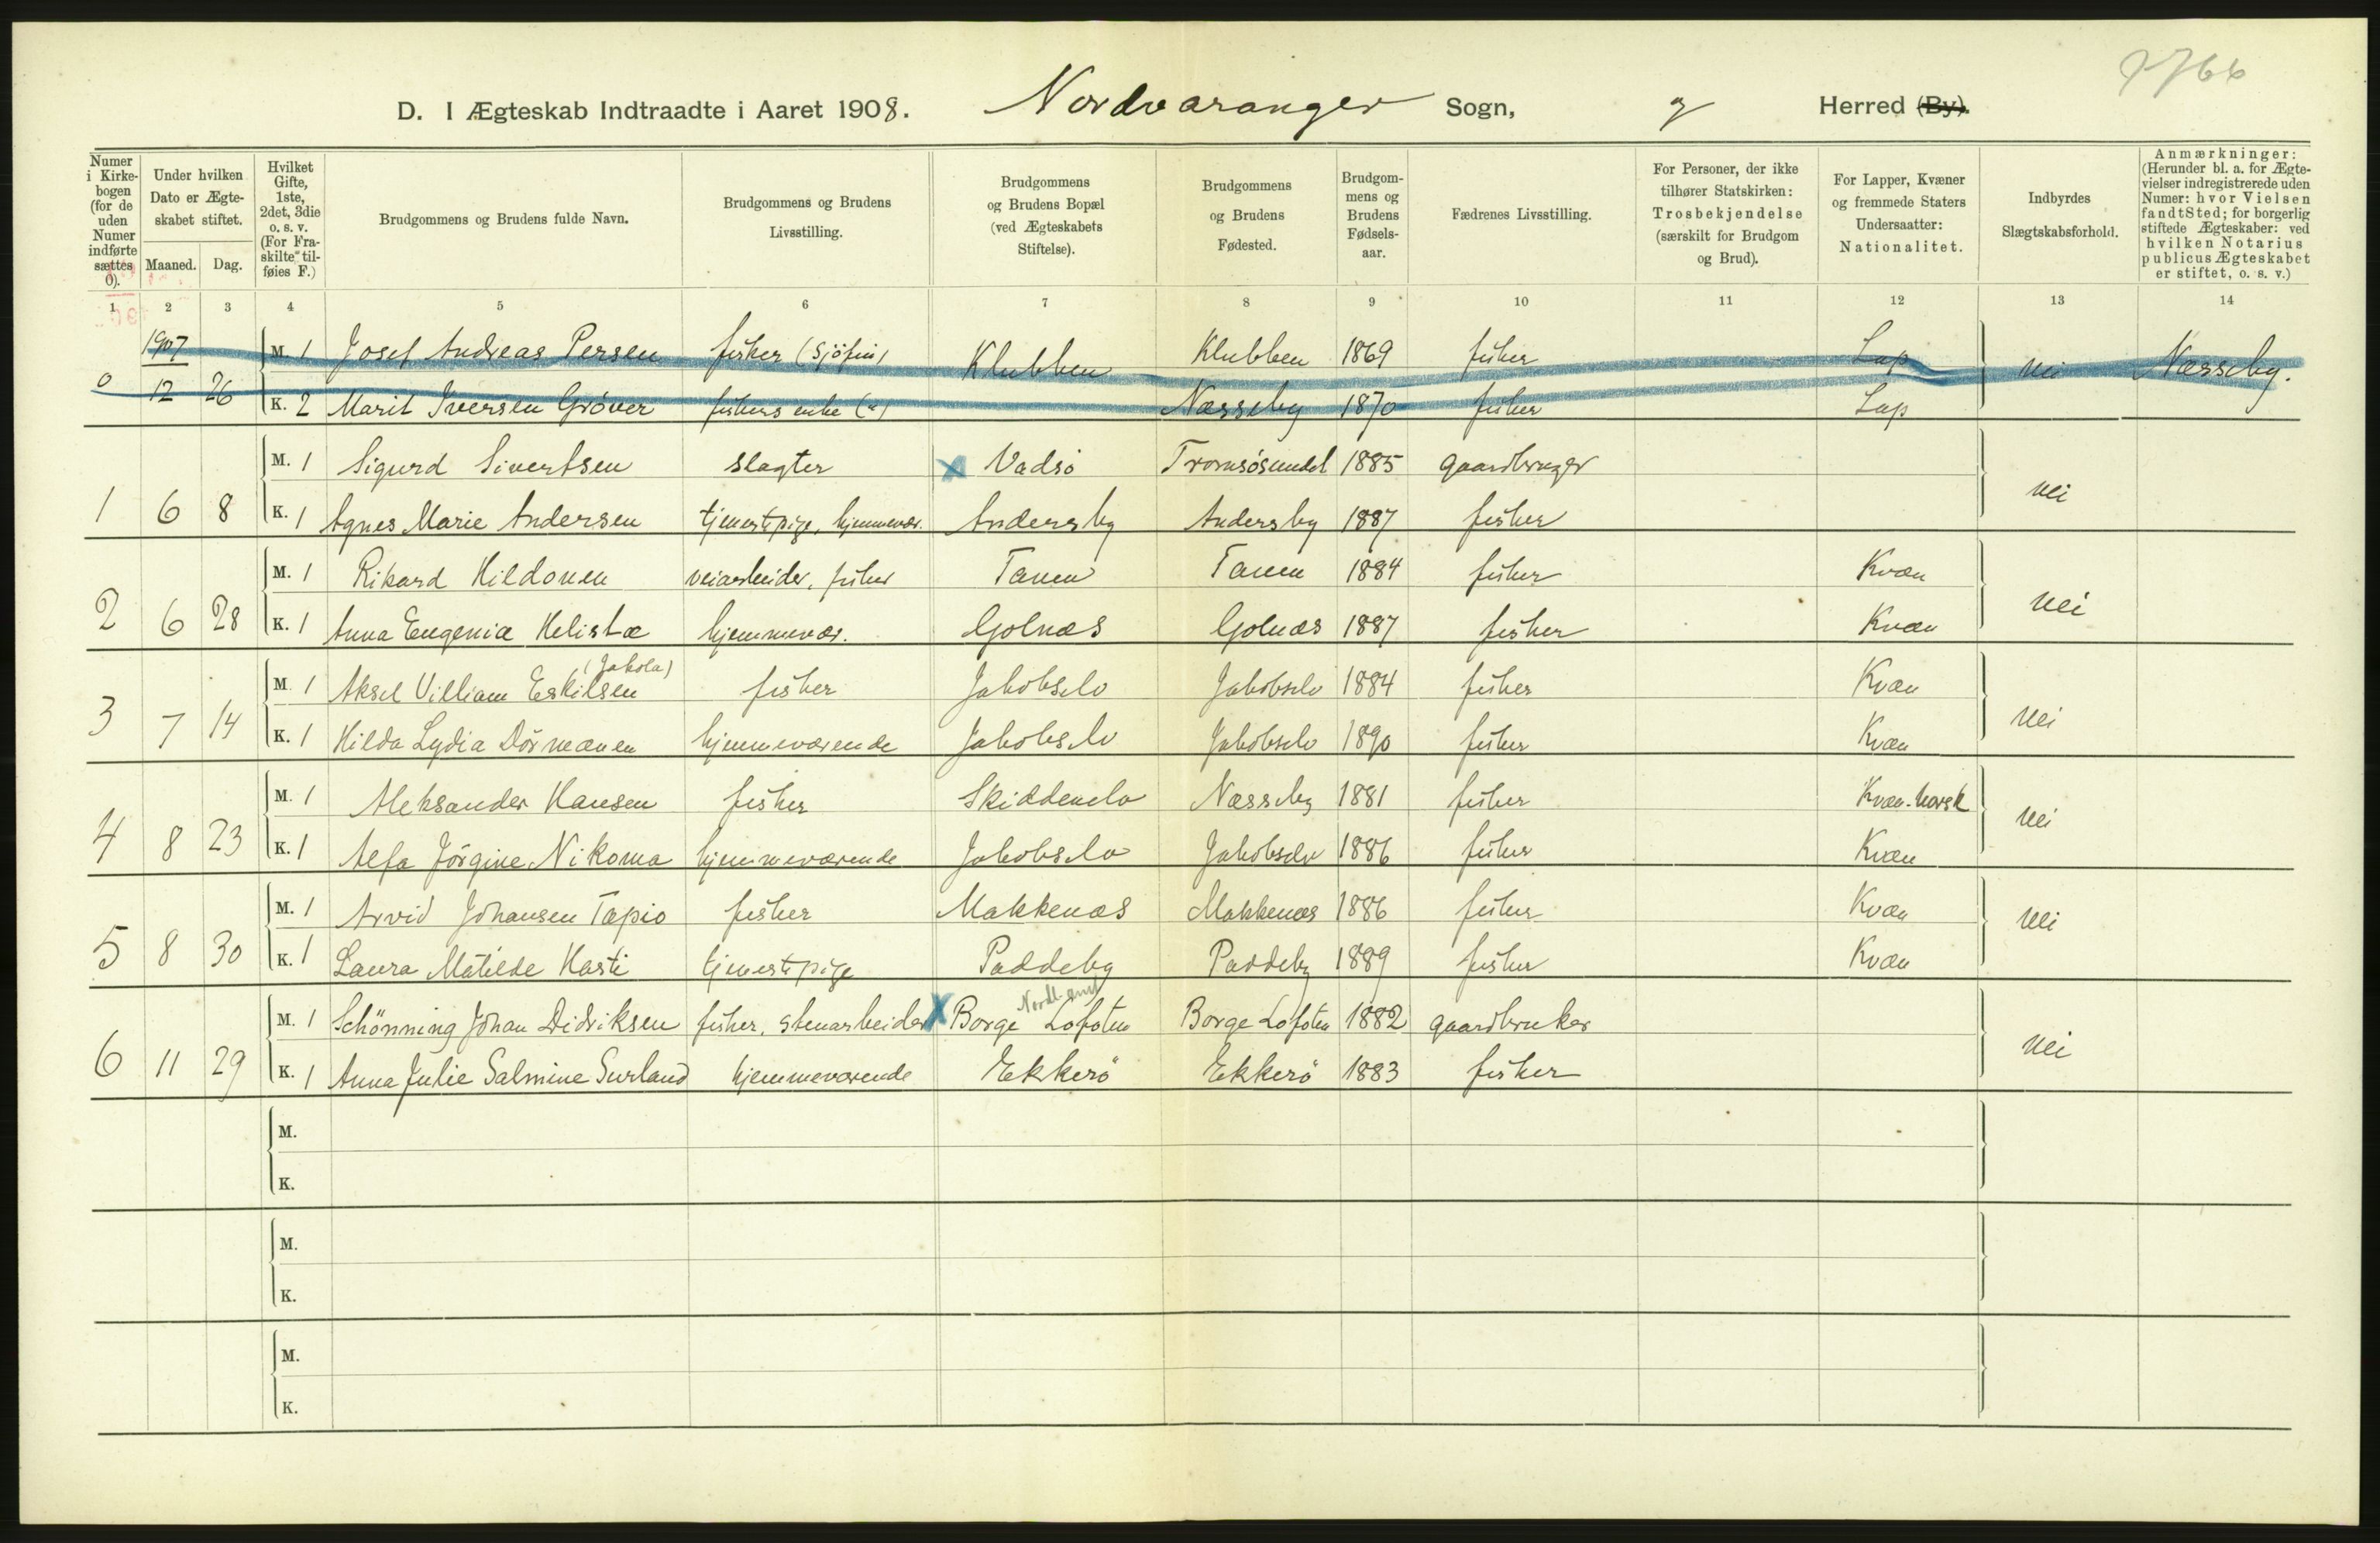 7766
D. I Ægteskab Indtraadte i Aaret 1908. Nordvaranger Sogn, Herred (By).
Numer i Kirkebogen (for de uden Numer indførte sættes 0).
Under hvilken Dato er Ægteskabet stiftet.
Maaned. Dag.
Hvilket Gifte, 1ste, 2det, 3die o. s. v. (For Fraskilte tilføies F.)
Brudgommens og Brudens fulde Navn.
Brudgommens og Brudens Livsstilling.
Brudgommens og Brudens Bopæl (ved Ægteskabets Stiftelse).
Brudgommens og Brudens Fødested.
Brudgommens og Brudens Fødselsaar.
Fædrenes Livsstilling.
For Personer, der ikke tilhører Statskirken: Trosbekjendelse (særskilt for Brudgom og Brud).
For Lapper, Kvæner og fremmede Staters Undersaatter: Nationalitet.
Indbyrdes Slægtskabsforhold.
Anmærkninger: (Herunder bl. a. for Ægtevielser indregistrerede uden Numer: hvor Vielsen fandt Sted; for borgerlig stiftede Ægteskaber: ved hvilken Notarius publicus Ægteskabet er stiftet, o. s. v.)
1 2 3 4 5 6 7 8 9 10 11 12 13 14
1907 M. 1 Josef Andreas Persen fisker (Sjöfin) Klubben Klubben 1869 fisker Lap nei Næsseby.
0 12 26 K. 2 Marit Iversen Gröver fiskers enke (") Næsseby 1870 fisker Lap
M. 1 Sigurd Sivertsen slagter x Vadsö Tromsösundet 1885 gaardbruger nei
1 6 8 K. 1 Agnes Marie Andersen tjenestepige, hjemmevær. Andersby Andersby 1887 fisker
M. 1 Rikard Hildonen veiarbeider, fisker Tanen Tanen 1884 fisker Kvæn nei
2 6 28 K. 1 Anna Eugenia Helistæ hjemmevær. Golnæs Golnæs 1887 fisker Kvæn
(Jakola)
M. 1 Aksel Villiam Eskilsen fisker Jakobselv Jakobselv 1884 fisker Kvæn nei
3 7 14 K. 1 Hilda Lydia Dörmænen hjemmeværende Jakobselv Jakobselv 1890 fisker Kvæn
M. 1 Aleksander Hansen fisker Skiddenelv Næsseby 1881 fisker Kvæn-norsk nei
4 8 23 K. 1 Alfa Jörgine Nikoma hjemmeværende Jakobselv Jakobselv 1886 fisker Kvæn
M. 1 Arvid Johansen Tapio fisker Makkenæs Makkenæs 1886 fisker Kvæn nei
5 8 30 K. 1 Laura Matilde Harti tjenestepige Paddeby Paddeby 1889 fisker Kvæn
Nordl. amt
M. 1 Schönning Johan Didriksen fisker, stenarbeider x Borge Lofoten Borge Lofoten 1882 gaardbruker nei
6 11 29 K. 1 Anna Julie Salmine Surland hjemmeværende Ekkerö Ekkerö 1883 fisker
M.
K.
M.
K.
M.
K.